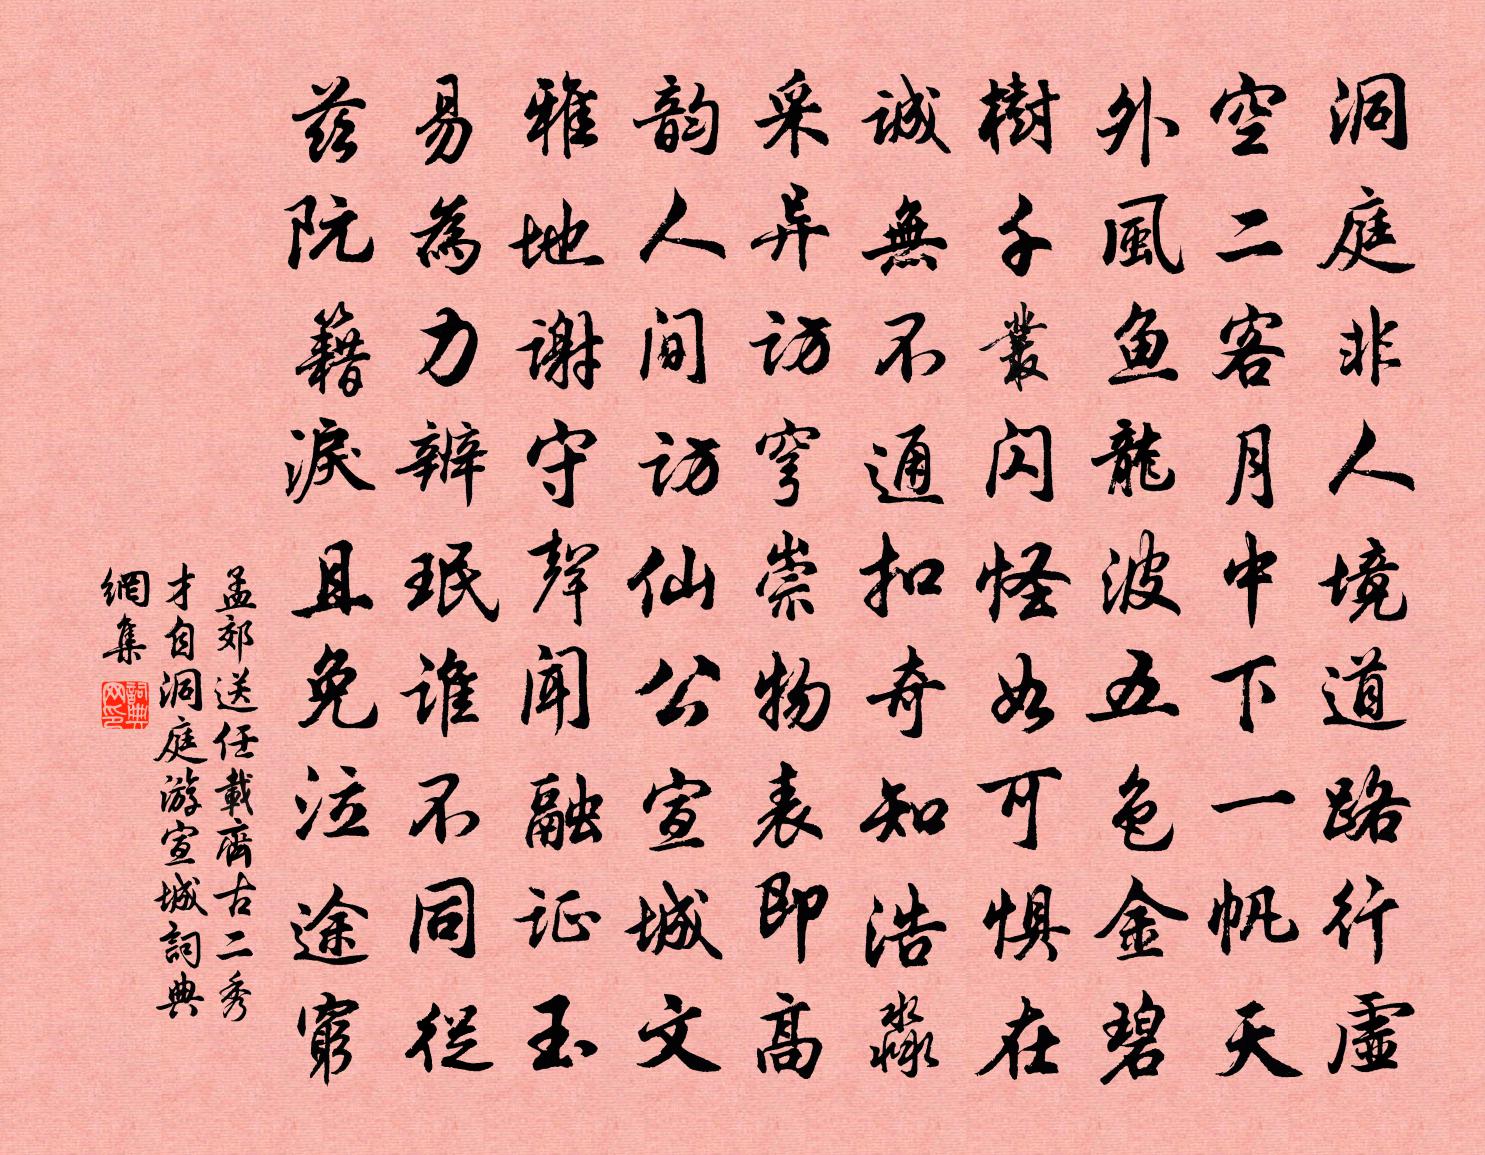 洞庭非人境道路行虛
空二客月中下一帆天
外風魚龍波五色金碧
樹千叢閃怪如可懼在
誠無不通扣奇知浩淼
采异訪穹崇物表即高
韵人間訪仙公宣城文
雅地謝守聲聞融证玉
易為力辨珉誰不同從
茲阮籍淚且免泣途窮
孟郊送任載齊古二秀
才自洞庭游宣城詞典
網集
詞典
网印